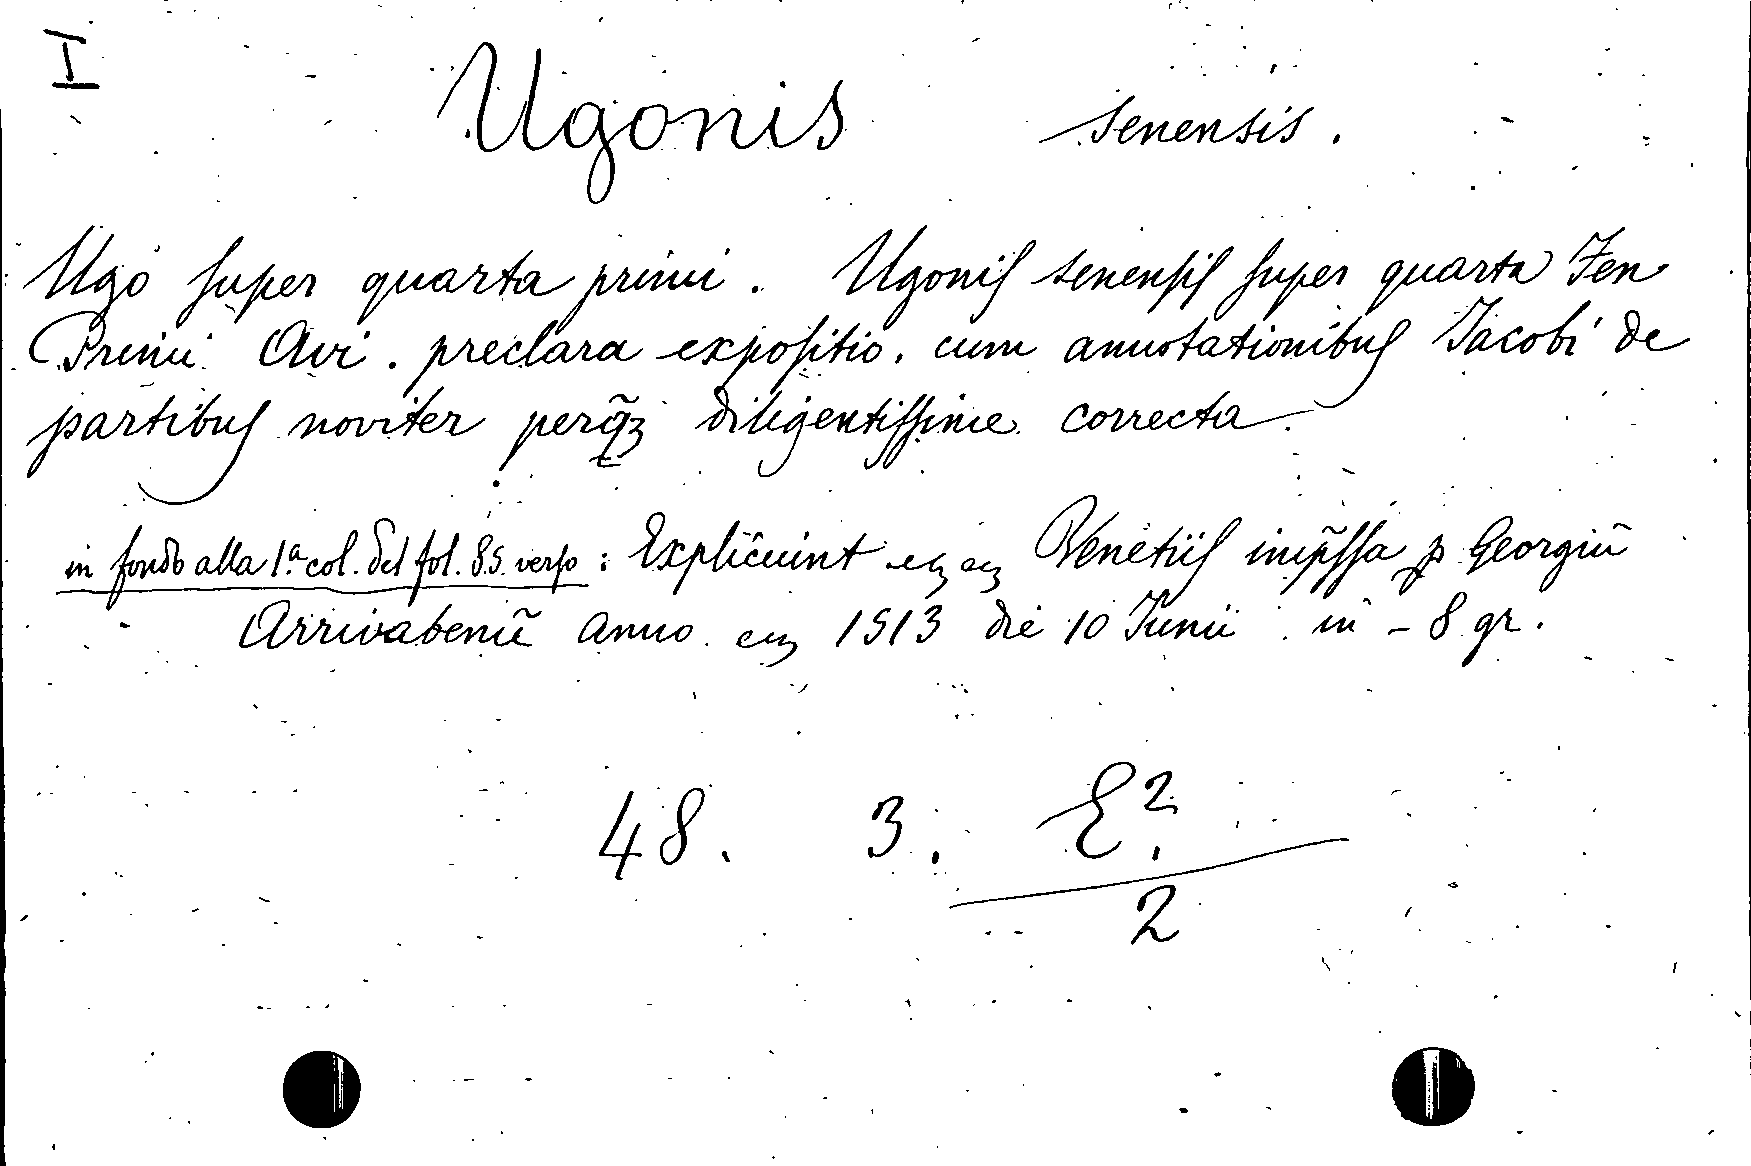 I
Ugonis senensis.
Ugo ſuper quarta primi. Ugoniſ senenſiſ ſuper quarta Fen
Primi Avi. preclara expoſitio. cum annotationibuſ Jacobi de
partibuſ noviter perq̃ʒ diligentiſſime correcta.
in fondo alla 1ª col. del fol. 85 verſo: Explicuint Venetiiſ imp̃ſſa ꝑ Georgiũ
Arrivabenũ anno 1513 die 10 Junii in-8 gr.
48. 3. E².
2